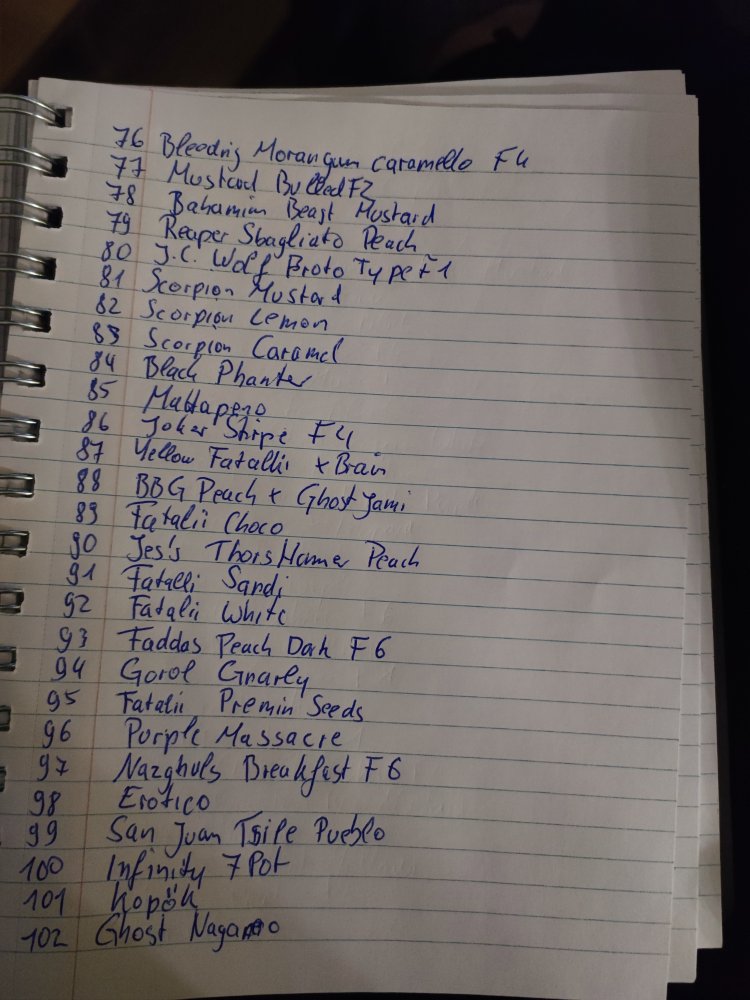 76 Bleednig Morangum caramello F4
77 Mustard Bulled F2
78 Bahamian Beast Mustard
79 Reaper Sbagliato Peach
80 J.C. Wolf Proto Type F1
81 Scorpion Mustard
82 Scorpion Lemon
83 Scorpion Caramel
84 Black Phanter
85 Mattapeno
86 Joker Stripe F4
87 Yellow Fatallii x Brain
88 BBG Peach x Ghost Jami
89 Fatalii Choco
90 Jes's Thors Hamer Peach
91 Fatalli Sardi
92 Fatalii White
93 Faddas Peach Dark F6
94 Gorol Gnarly
95 Fatalii Premin Seeds
96 Purple Massacre
97 Nazghuls Breakfast F6
98 Erotico
99 San Juan Tsile Pueblo
100 Infinity 7 Pot
101 Kopök
102 Ghost Nagano